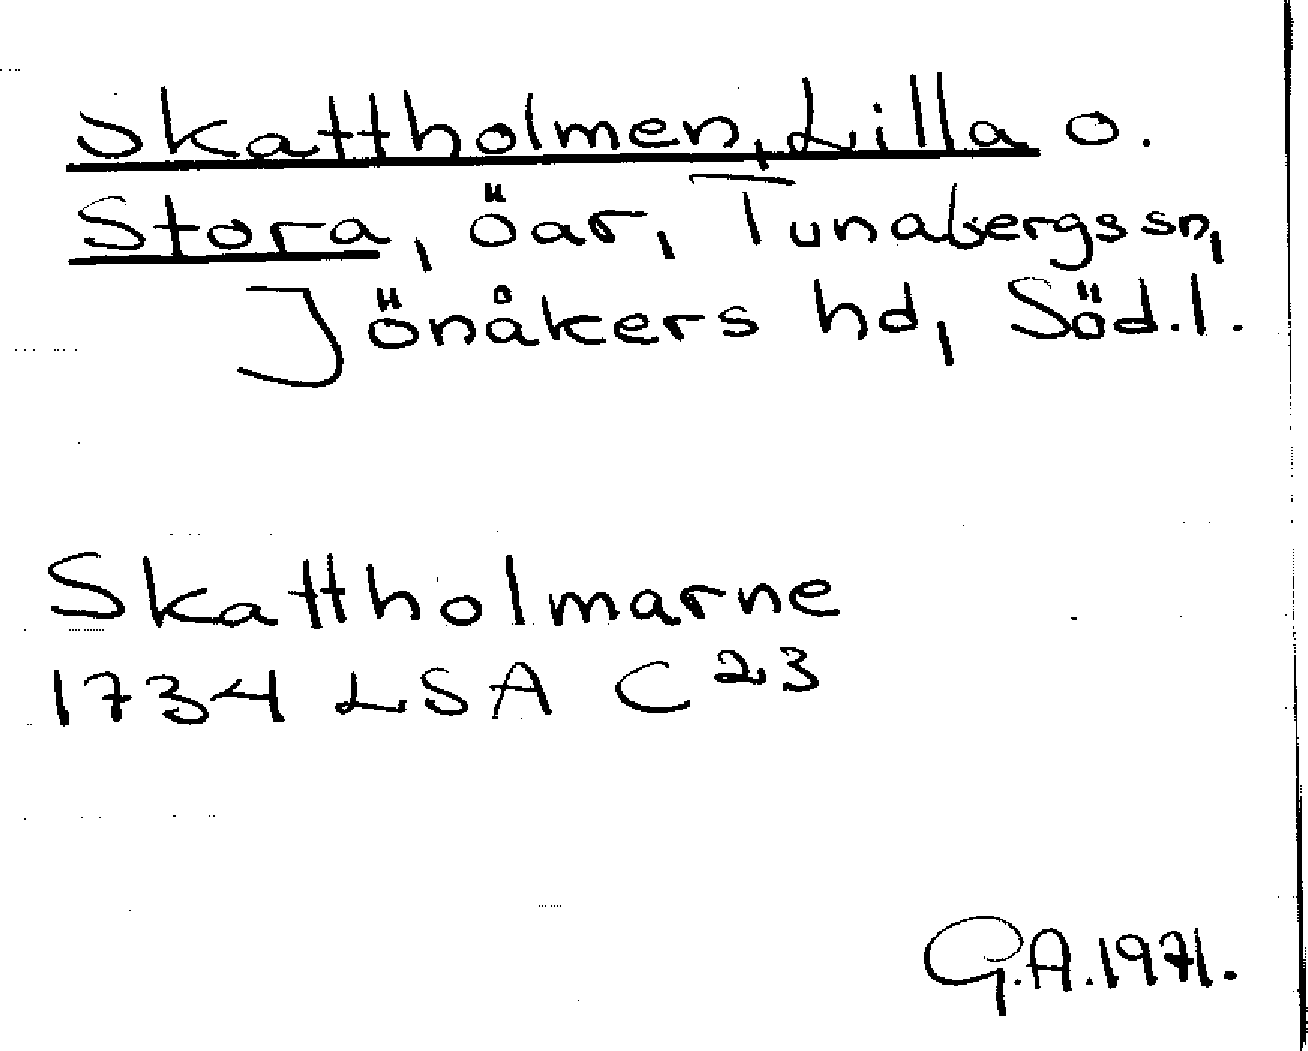 Skattholmen, Lilla o.
Stora, öar, Tunabergs sn,
Jönåkers hd, Söd.l.
Skattholmarne
1734 LSA C 23
G.A. 1971.